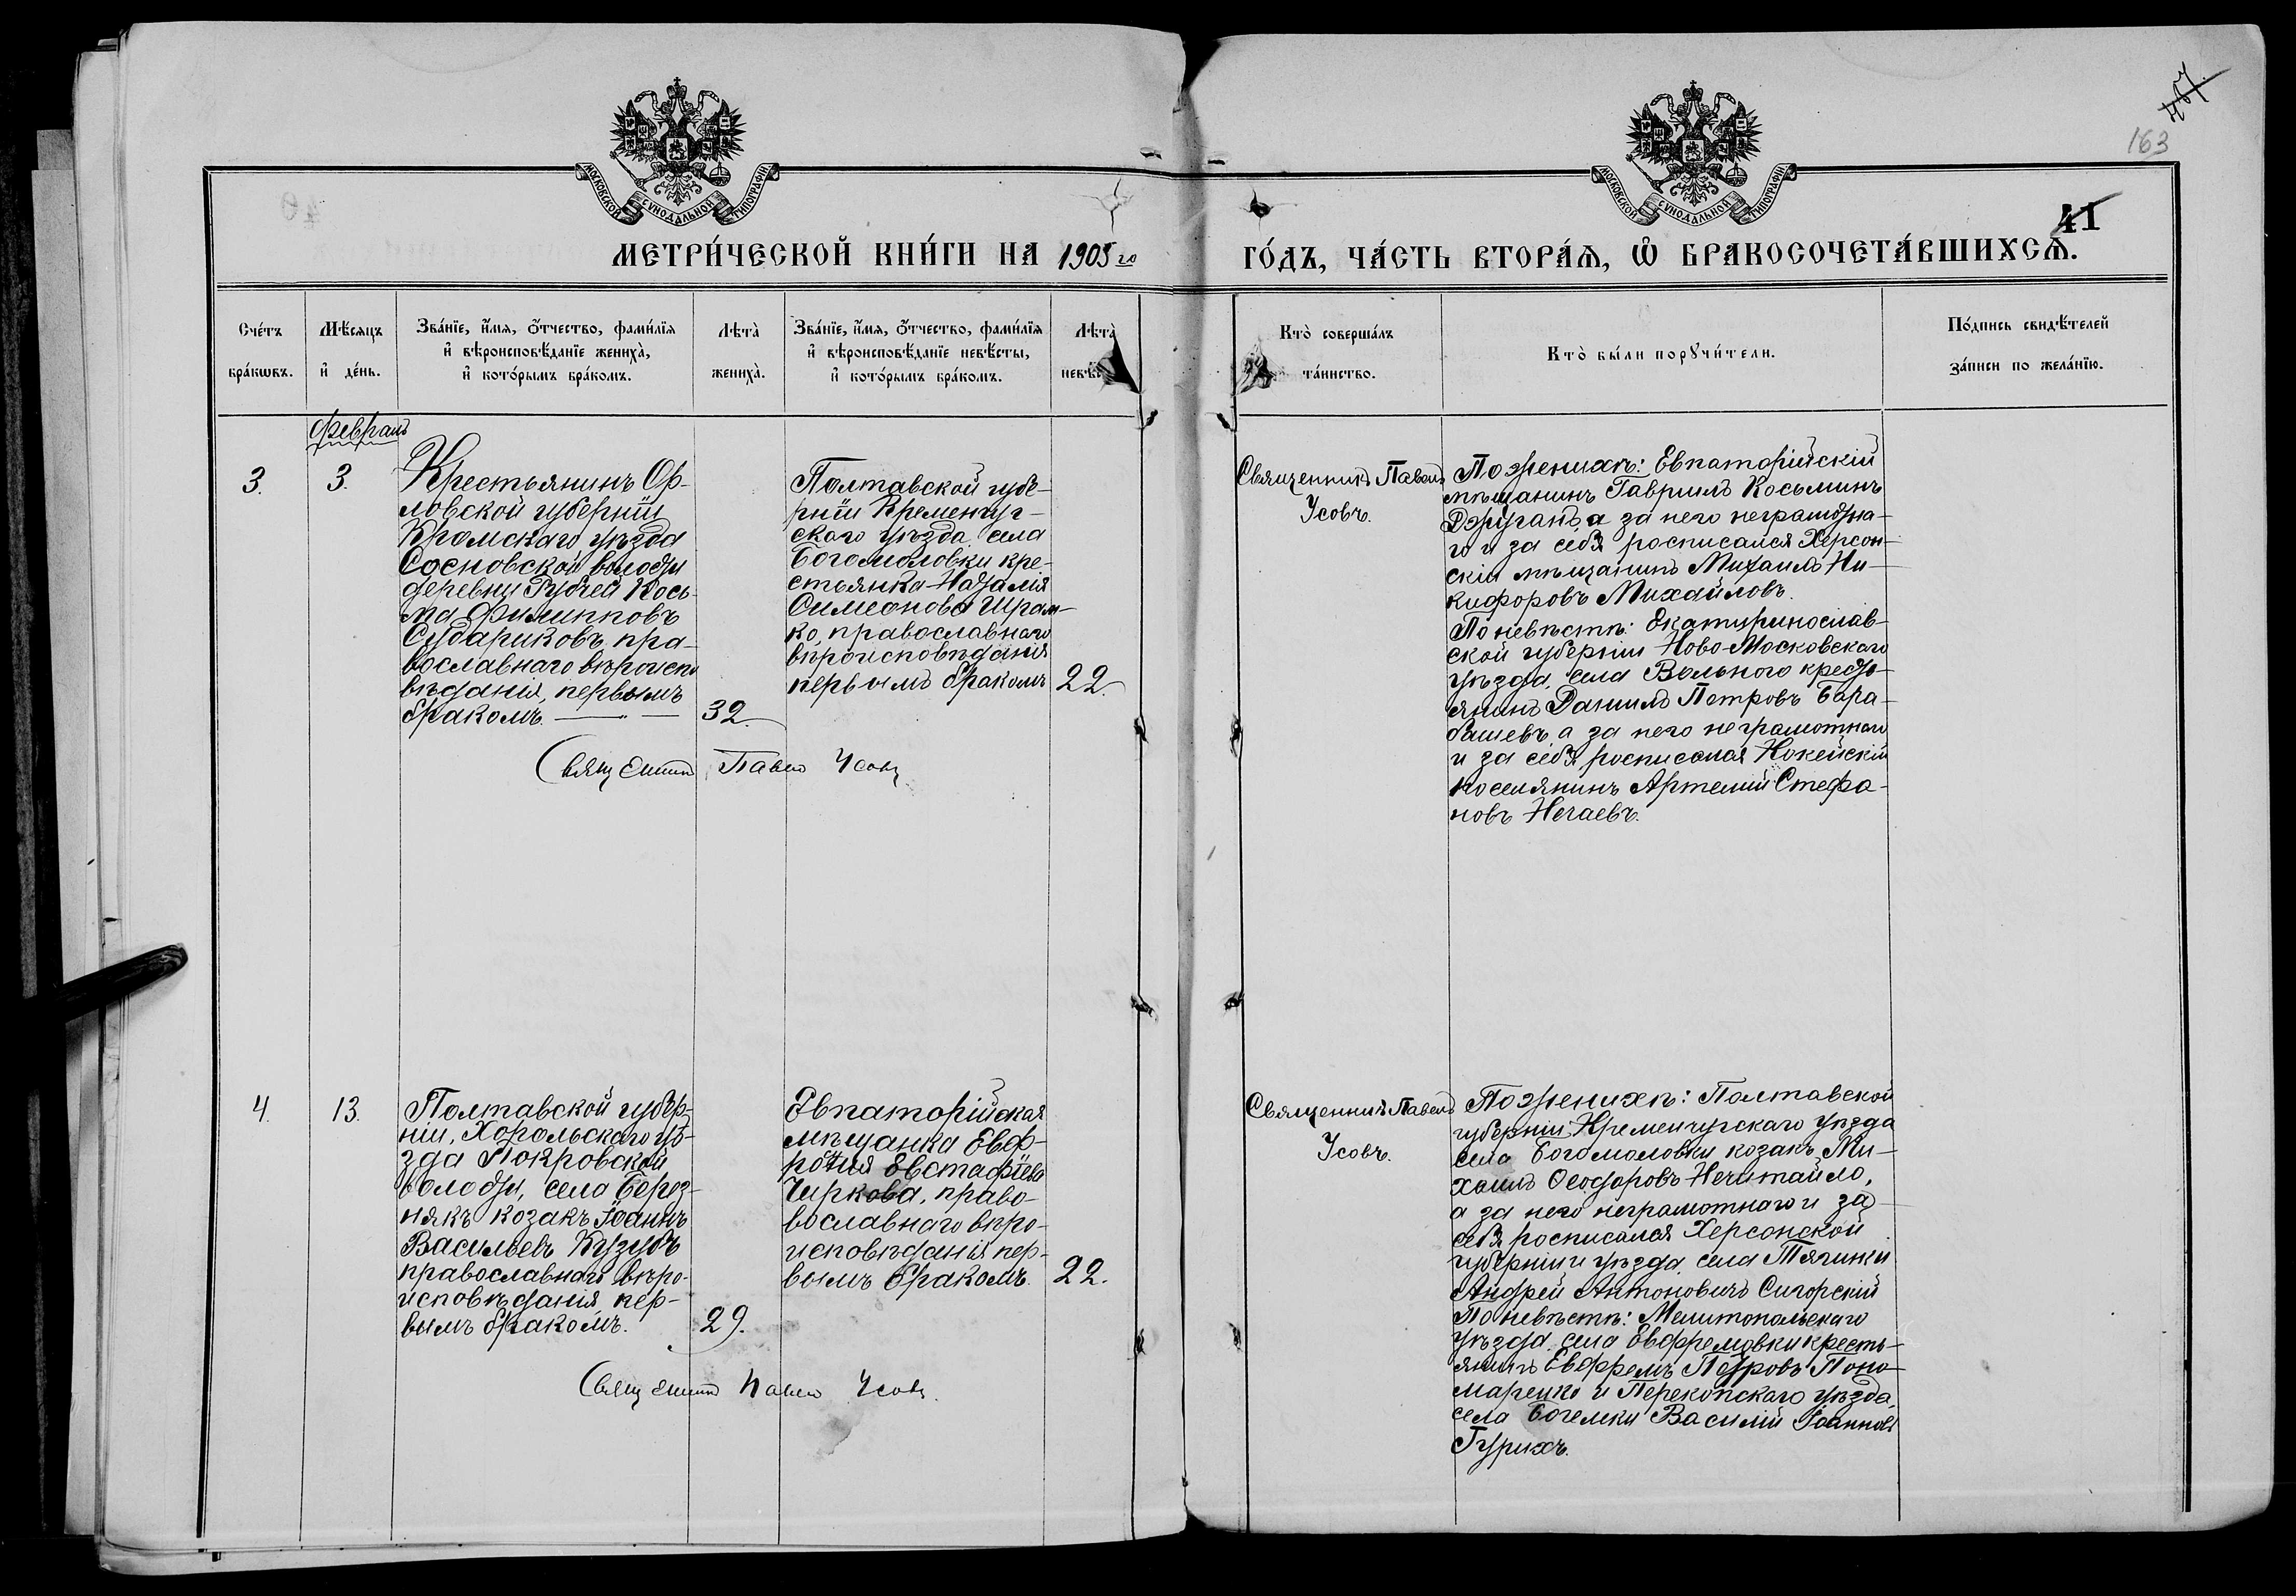 467.
163
41
МОСКОВСКОЙ СѴНОДАЛЬНОЙ ТИПОГРАФІИ
МОСКОВСКОЙ СѴНОДАЛЬНОЙ ТИПОГРАФІИ
МЕТРИ́ЧЕСКОЙ КНИ́ГИ НА 1905 го ГО́ДЪ, ЧА́СТЬ ВТОРА́Ѧ, Ѡ҆ БРАКОСОЧЕТА́ВШИХСѦ.
Сче́тъ
бра́кѡвъ.
Мѣ́сѧцъ
и҆ де́нь.
Зва́нїе, и҆́мѧ, ѻ҆́тчество, фами́лїѧ
и҆ вѣроисповѣ́данїе жениха̀,
и҆ кото́рымъ бра́комъ.
Лѣта̀
жениха̀.
Зва́нїе, и҆́мѧ, ѻ҆́тчество, фами́лїѧ
и҆ вѣроисповѣ́данїе невѣ́сты,
и҆ кото́рымъ бра́комъ.
Лѣта̀
невѣ́с
Кто̀ соверша́лъ
та́инство.
Кто̀ бы́ли порꙋчи́тели.
По́дпись свидѣ́телей
за́писи по жела́нїю.
Февраль
3.
3.
Крестьянинъ Ор-
ловской губерніи
Кромскаго уѣзда
Сосновской волости
деревни Рубчей Кось-
ма Филипповъ
Судариковъ, пра-
вославнаго вѣроиспо
вѣданія, первымъ
бракомъ.
32.
Полтавской губе-
рніи Кременчуг-
скаго уѣзда села
Богомоловки кре-
стьянка Наталія
Симеонова Шрам-
ко, православнаго
вѣроисповѣданія
первымъ бракомъ
22.
Священникъ Павелъ Усовъ
Священникъ Павелъ
Усовъ.
По женихѣ: Евпаторійскій
мѣщанинъ Гавриилъ Косьминъ
Джуганъ, а за него неграмотна-
го и за себя росписался Херсон-
скій мѣщанинъ Михаилъ Ни-
кифоровъ Михайловъ.
По невѣстѣ: Екатеринослав-
ской губерніи Ново-Московскаго
уѣзда, села Вольного кресть-
янинъ Даниилъ Петровъ Бара-
башевъ а за него неграмотнаго
и за себя росписался
поселянинъ Артемій Стефа-
новъ Нечаевъ.
4.
13.
Полтавской губер-
ніи, Хорольскаго уѣ-
зда Покровской
волости, села Берез-
някъ козакъ Іоаннъ
Васильевъ Кузубъ
православнаго вѣро-
исповѣданія, пер-
вымъ бракомъ.
29.
Евпаторійская
мѣщанка Евф-
росія Евстафіева
Чиркова, право-
вославнаго вѣро-
исповѣданія пер-
вымъ бракомъ.
22.
Священникъ Павелъ Усовъ.
Священникъ Павелъ
Усовъ.
По женихѣ: Полтавской
губерніи Кременчугскаго уѣзда
села Богомоловки козакъ Ми-
хаилъ Ѳеодоровъ Нечитайло,
а за него неграмотнаго и за
себя росписался Херсонской
губерніи и уѣзда, села Тягинки
Андрей Антоновичъ Сигорскій
По невѣстѣ: Мелитопольскаго
уѣзда, села Евфремовки кресть-
янинъ Евфремъ Петровъ Поно
маренко и Перекопскаго уѣзда,
села Богемки Василій Іоанновъ
Гурихъ.